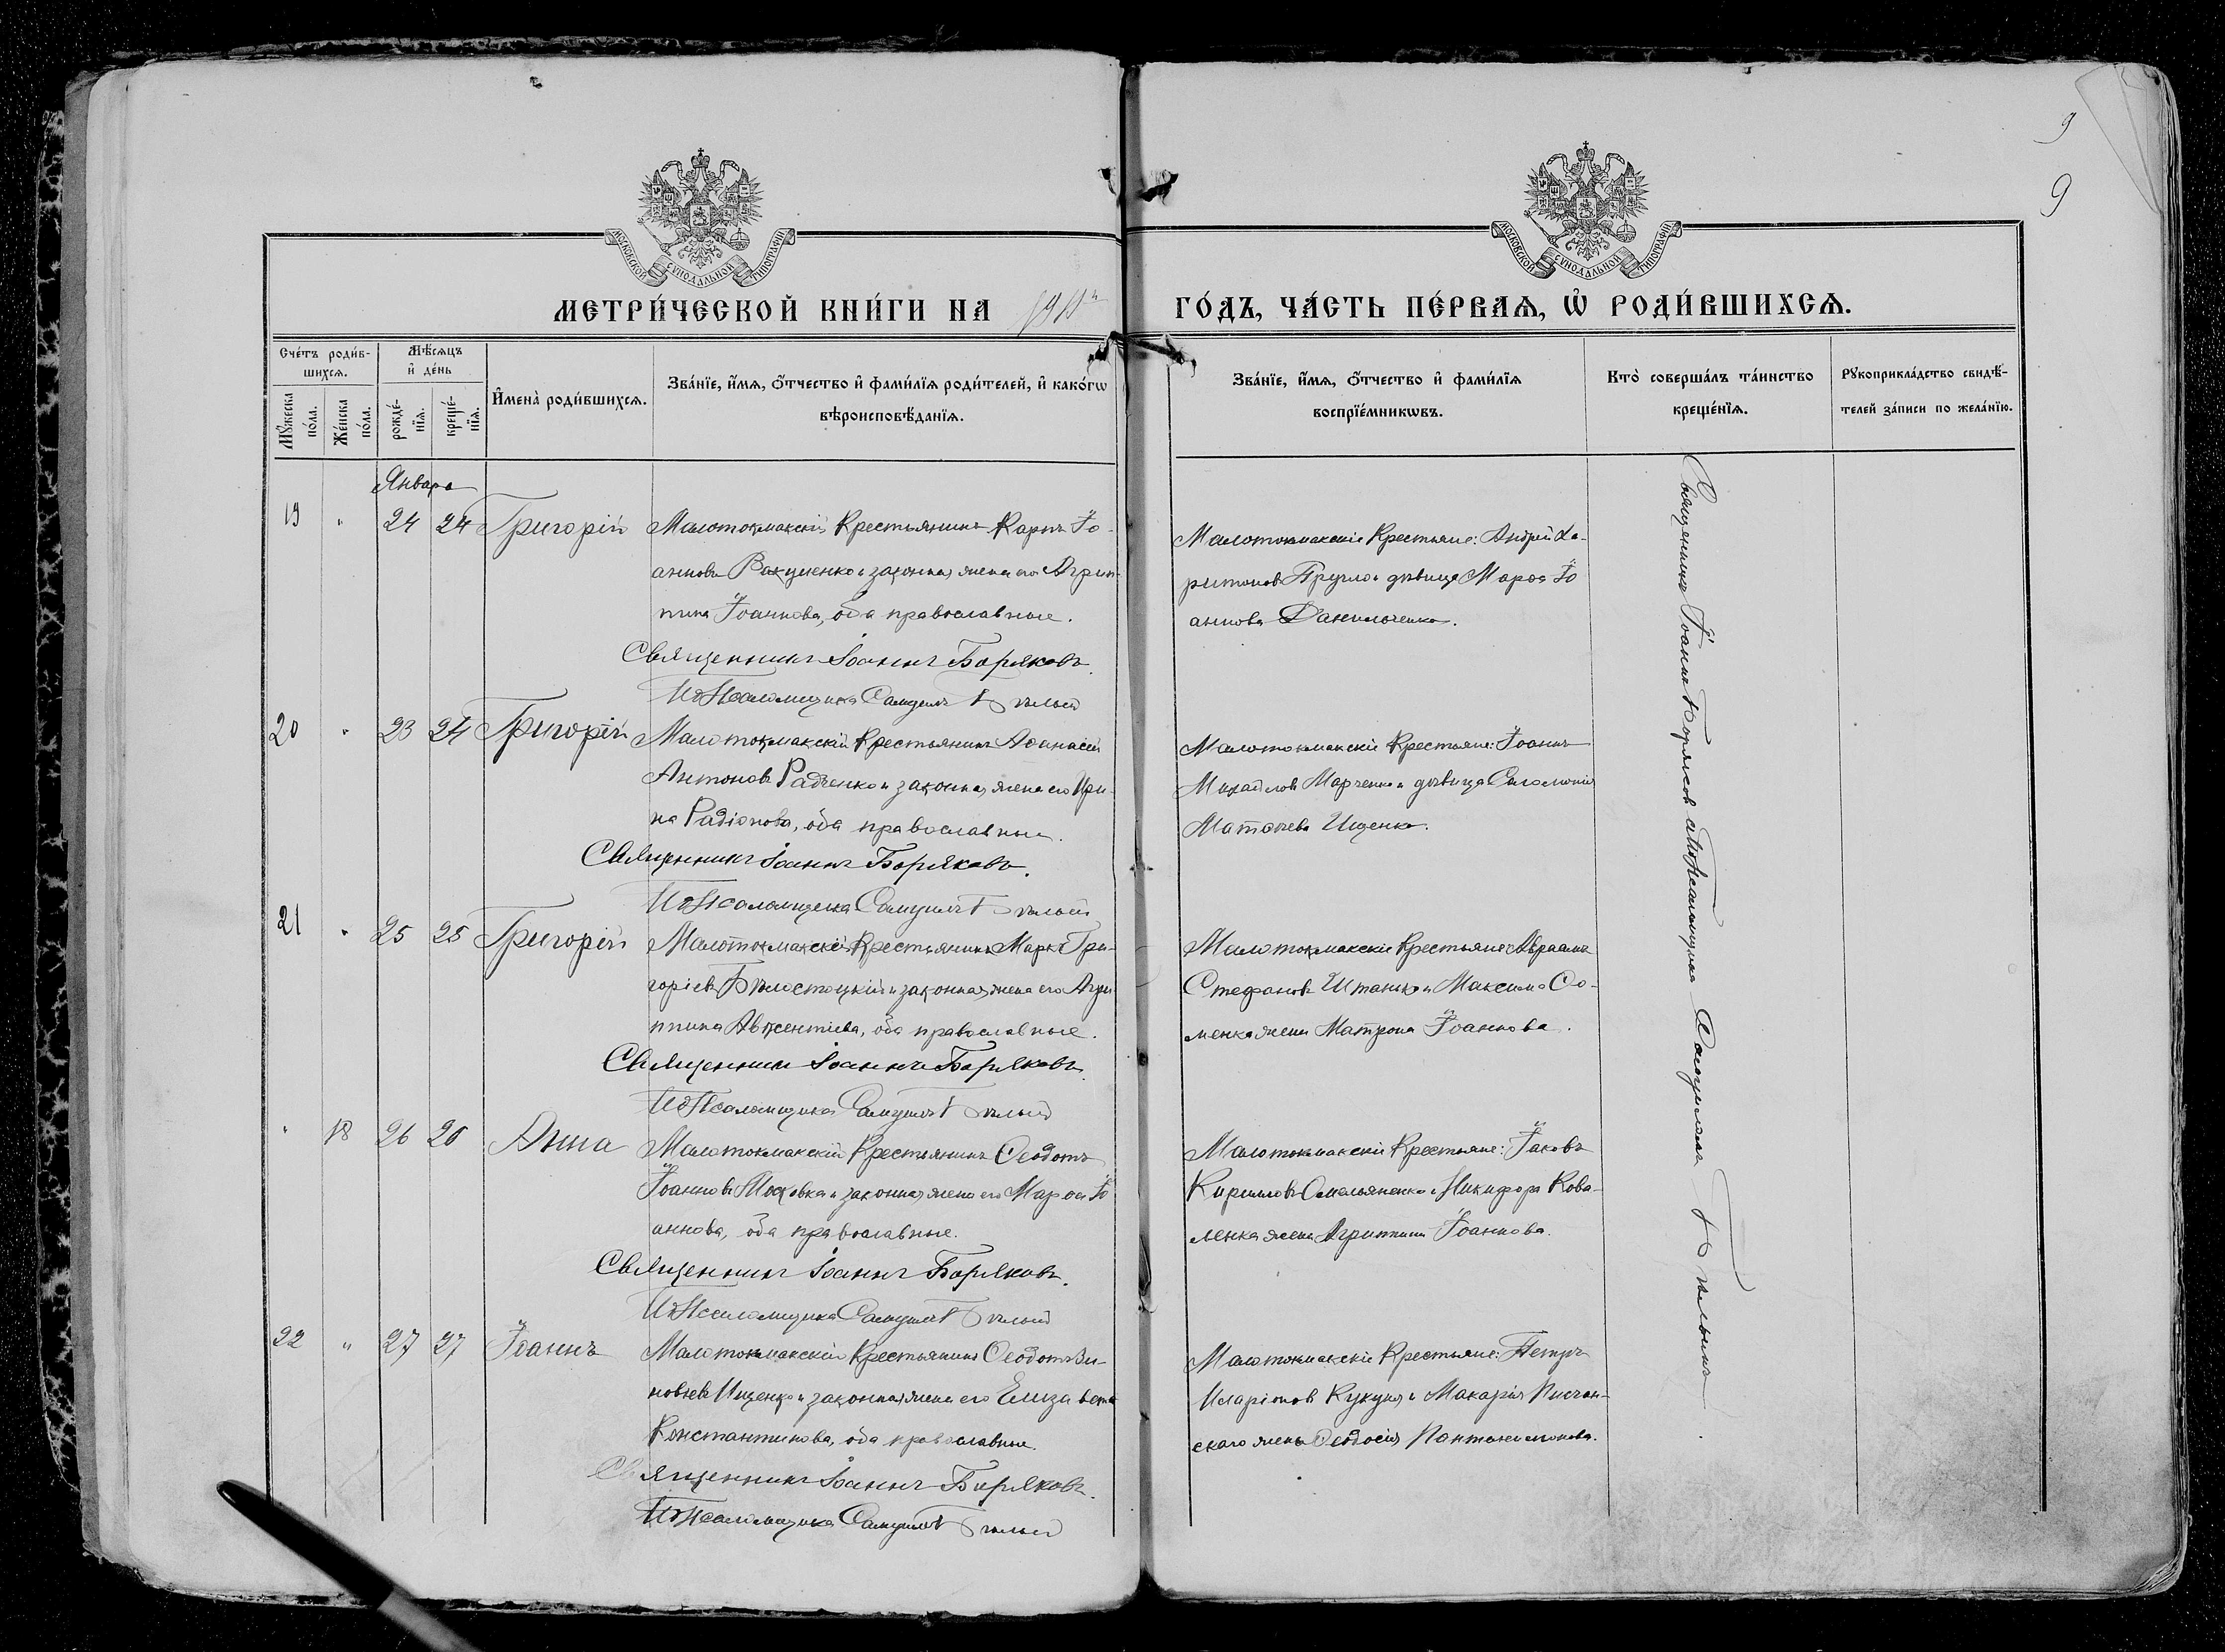 9
9
МОСКОВСКОЙ СѴНОДАЛЬНОЙ ТИПОГРАФІИ
МОСКОВСКОЙ СѴНОДАЛЬНОЙ ТИПОГРАФІИ
МЕТРИ́ЧЕСКОЙ КНИ́ГИ НА
ГО́ДЪ, ЧА́СТЬ ПЕ́РВАѦ, Ѡ҆ РОДИ́ВШИХСѦ.
Сче́тъ роди́в-
шихсѧ.
Мꙋ́жеска по́ла.
Же́нска по́ла.
Мѣ́сѧцъ и҆ де́нь
рожде́-нїѧ.
креще́-нїѧ.
И҆мена̀ роди́вшихсѧ.
Зва́нїе, и҆́мѧ, ѻ҆́тчество и҆ фами́лїѧ роди́телей, и҆ како́гѡ
вѣроисповѣ́данїѧ.
Зва́нїе, и҆́мѧ, ѻ҆́тчество и҆ фами́лїѧ
воспрїе́мникѡвъ.
Кто̀ соверша́лъ та́инство
креще́нїѧ.
Рꙋкоприкла́дство свидѣ́-
телей за́писи по жела́нїю.
Января
19 " 24 24 Григорій Малотокмакскій Крестьянинъ Карпъ Іо-
анновъ и законная жена его Агрип-
пина Іоаннова, оба православные.
Священникъ Іоаннъ Боряковъ.
И д Псаломщика Самуилъ Бѣлый
Малотокмакскіе Крестьяне: Андрей Ха-
ритоновъ и дѣвица Марѳа Іо
аннова Данильченко.
20 " 23 24 Григорій Малотокмакскій Крестьянинъ Аѳанасій
Антоновъ Радченко и законная жена его Ири-
на Радіонова, оба православные.
Священникъ Іоаннъ Боряковъ.
И д Псаломщика Самуилъ Бѣлый
Малотокмакскіе Крестьяне: Іоаннъ
Михайловъ Марченко и дѣвица Саломонія
Матѳеева Ищенко.
21 " 25 25 Григорій Малотокмакскій Крестьянинъ Маркъ Гри-
горіевъ Бѣлостоцкій и законная жена его Агри
ппина Авксентіева, оба православные.
Священникъ Іоаннъ Боряковъ.
И д Псаломщика Самуилъ Бѣлый
Малотокмакскіе Крестьяне: Авраамъ
Стефановъ Штанько и Максима Со-
менка жена Матрона Іоаннова.
" 18 26 26 Анна Малотокмакскій Крестьянинъ Ѳеодотъ
Іоанновъ Московка и законная жена его Марѳа Іо
аннова, оба православные.
Священникъ Іоаннъ Боряковъ.
И д Псаломщика Самуилъ Бѣлый
Малотокмакскіе Крестьяне: Іаковъ
Кирилловъ Омельяненко и Никифора Кова-
ленка жена Агриппина Іоаннова.
22 " 27 27 Іоаннъ Малотокмакскій Крестьянинъ Ѳеодотъ Зи-
новьевъ Ищенко и законная жена его Елизавета
Константинова, оба православные.
Священникъ Іоаннъ Боряковъ.
И д Псаломщика Самуилъ Бѣлый
Малотокмакскіе Крестьяне: Петръ
Иларіоновъ Кукуня и Макарія Писчан-
скаго жена Ѳеодосія Пантелеимонова.
Священникъ Іоаннъ Боряковъ с И д Псаломщика Самуиломъ Бѣлымъ